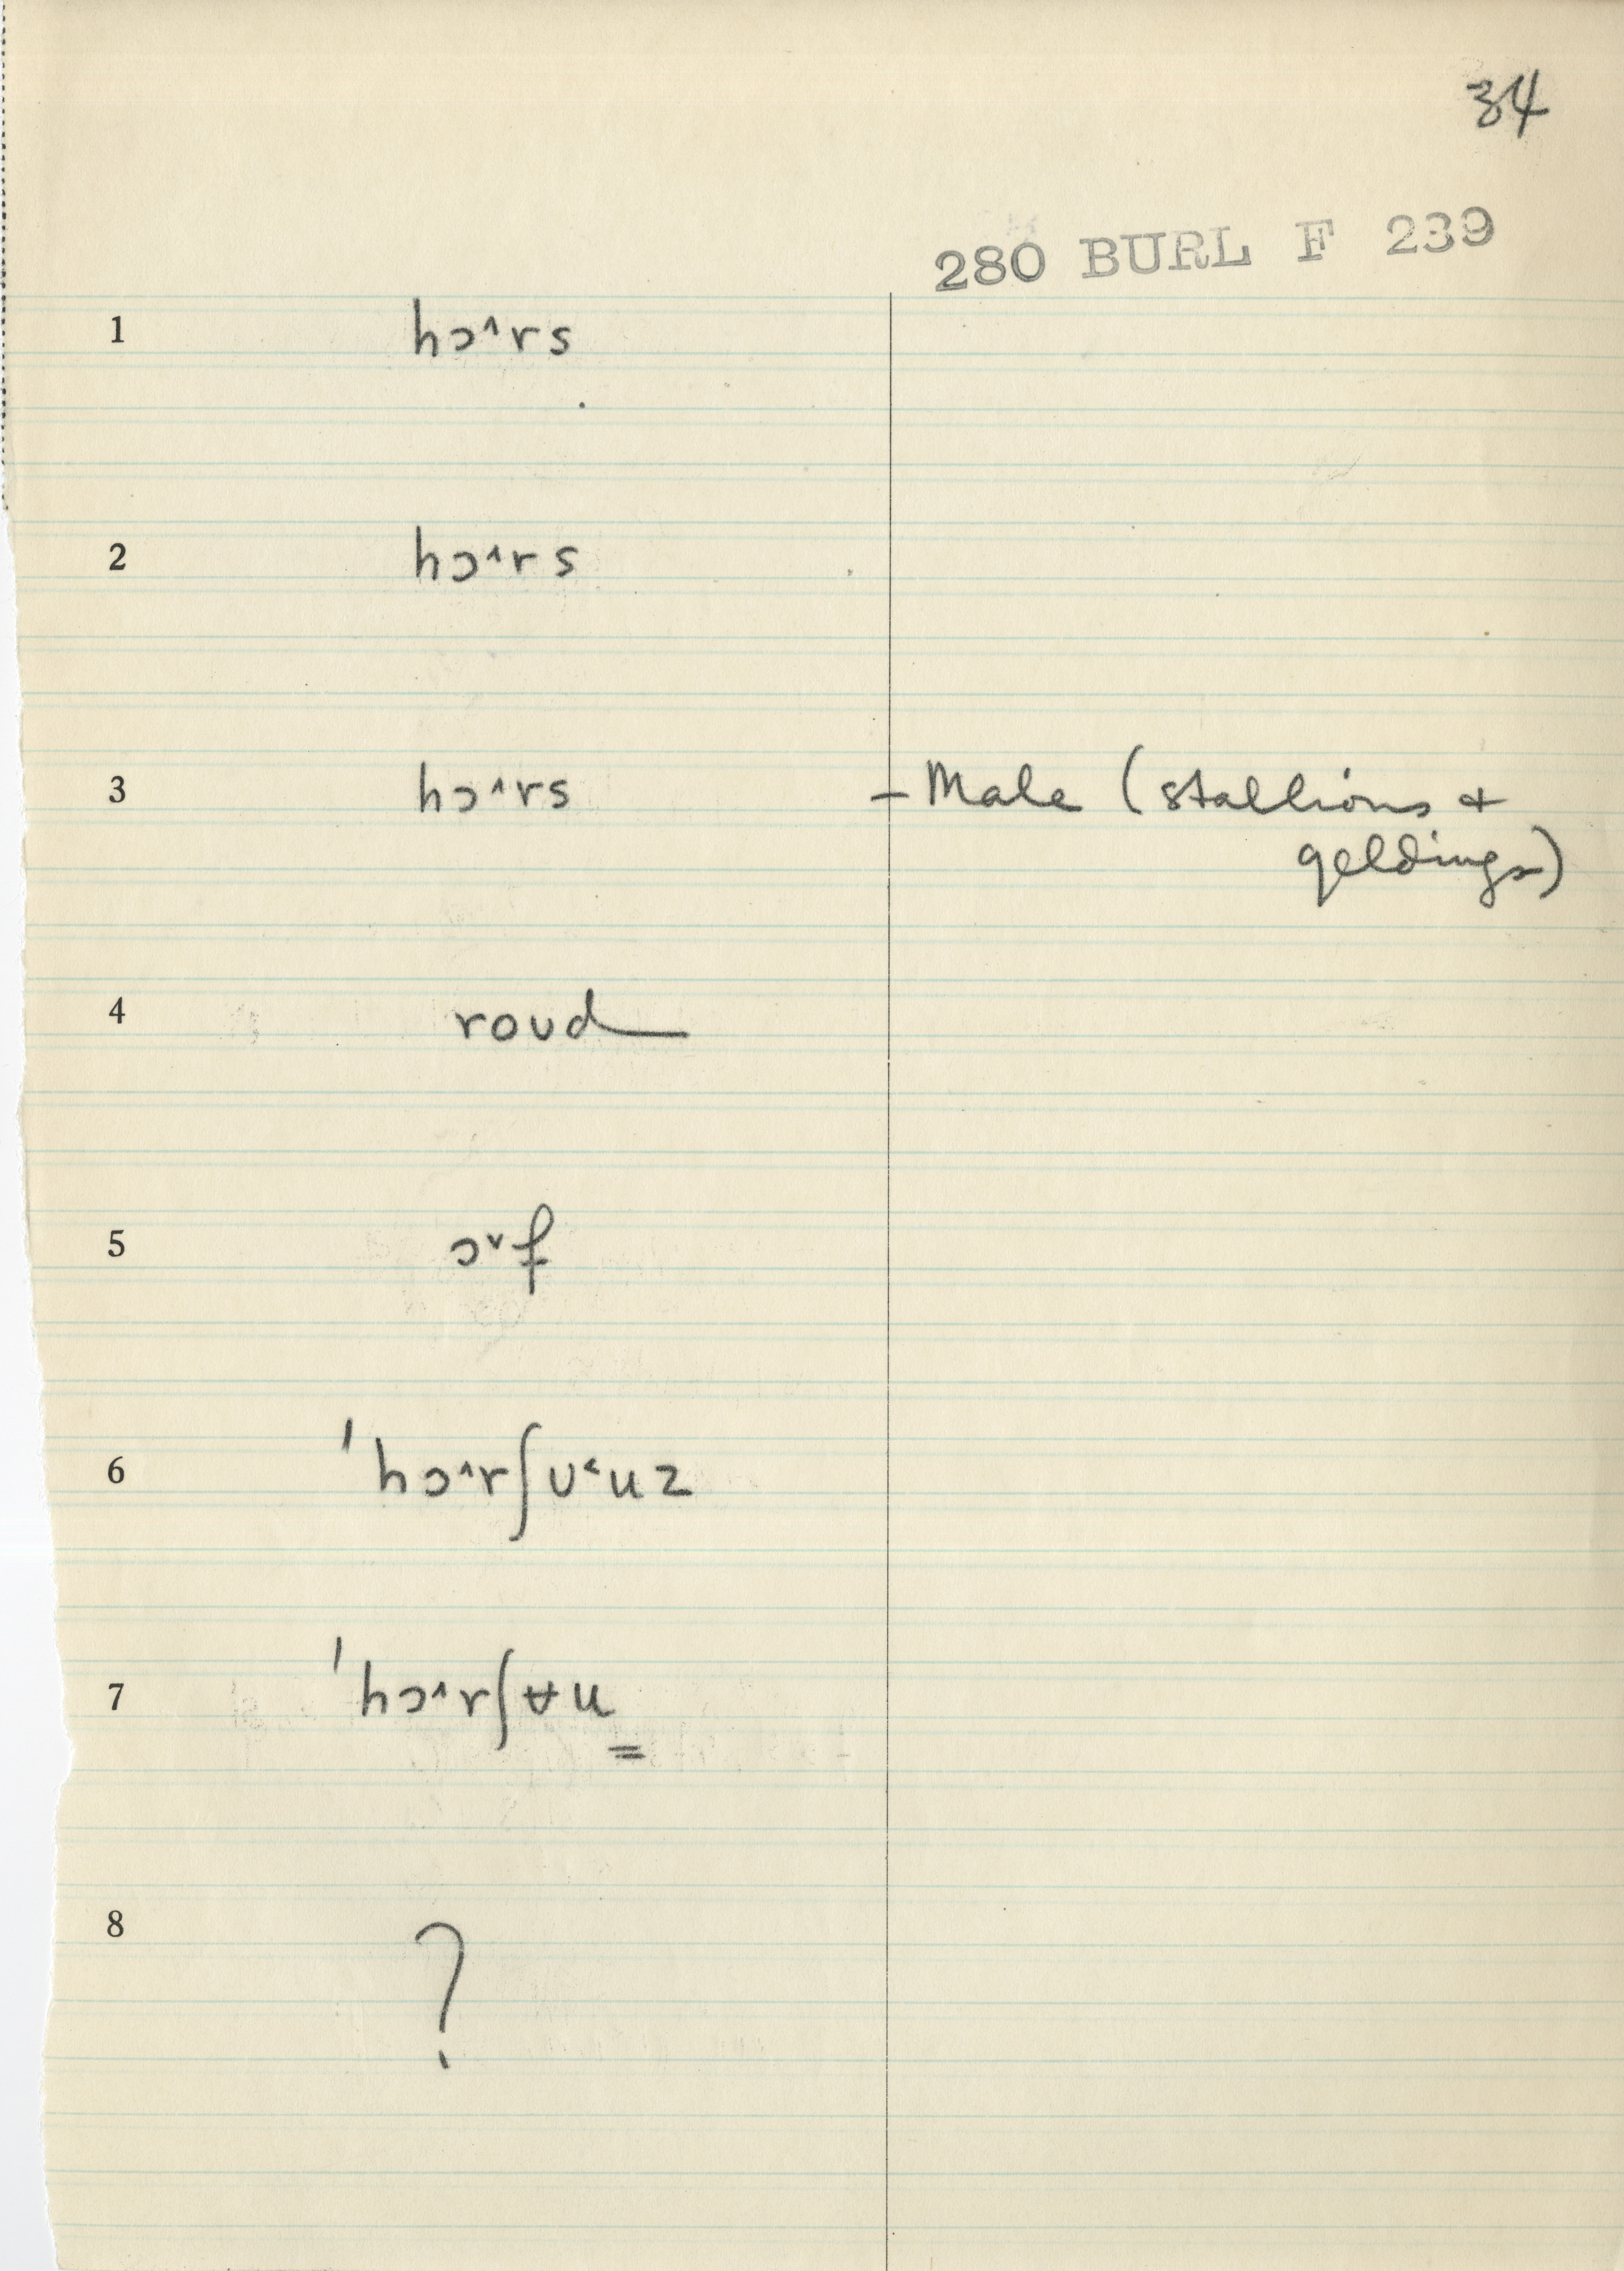 34
280 BURL F 239
1 hɔ^rs
2 hɔ^rs
3 hɔ^rs – Male (stallions +
geldings)
4 roud
5 ɔˇf
6 'hɔ^rʃʊ˂uz
7 'hɔ^rʃɐu
8 ?